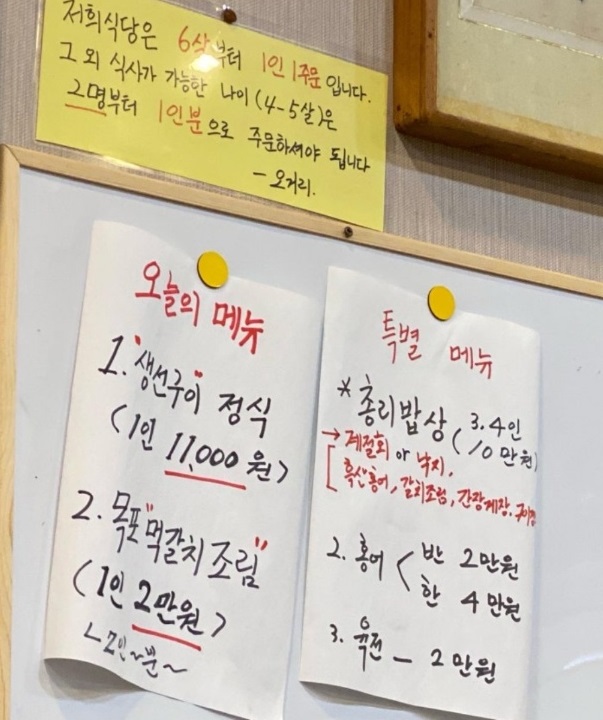 저희식당은 6살부터 1인 1주문 입니다.
그 외 식사가 가능한 나이 (4-5살)은
2명부터 1인분으로 주문하셔야 됩니다
- 오거리.
오늘의 메뉴
1. "생선구이" 정식
(1인 11,000원)
2. 목포"먹갈치조림"
(1인 2만원)
특별 메뉴
* 총리밥상 (3.4인
10만원)
→ 계절회 or 낙지,
흑산홍어, 갈치조림, 간장게장,
2. 홍어 < 반 2만원
한 4만원
3. 육전 - 2만원